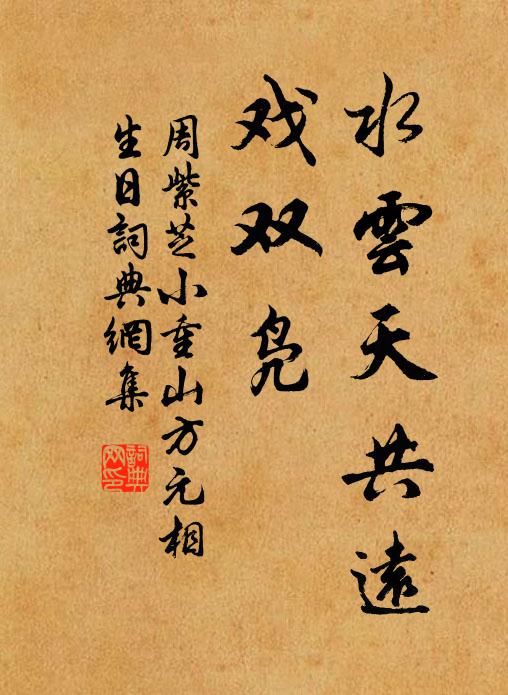 水雲天共遠
戏双凫
周紫芝小重山方元相
生日詞典網集
詞典
网印